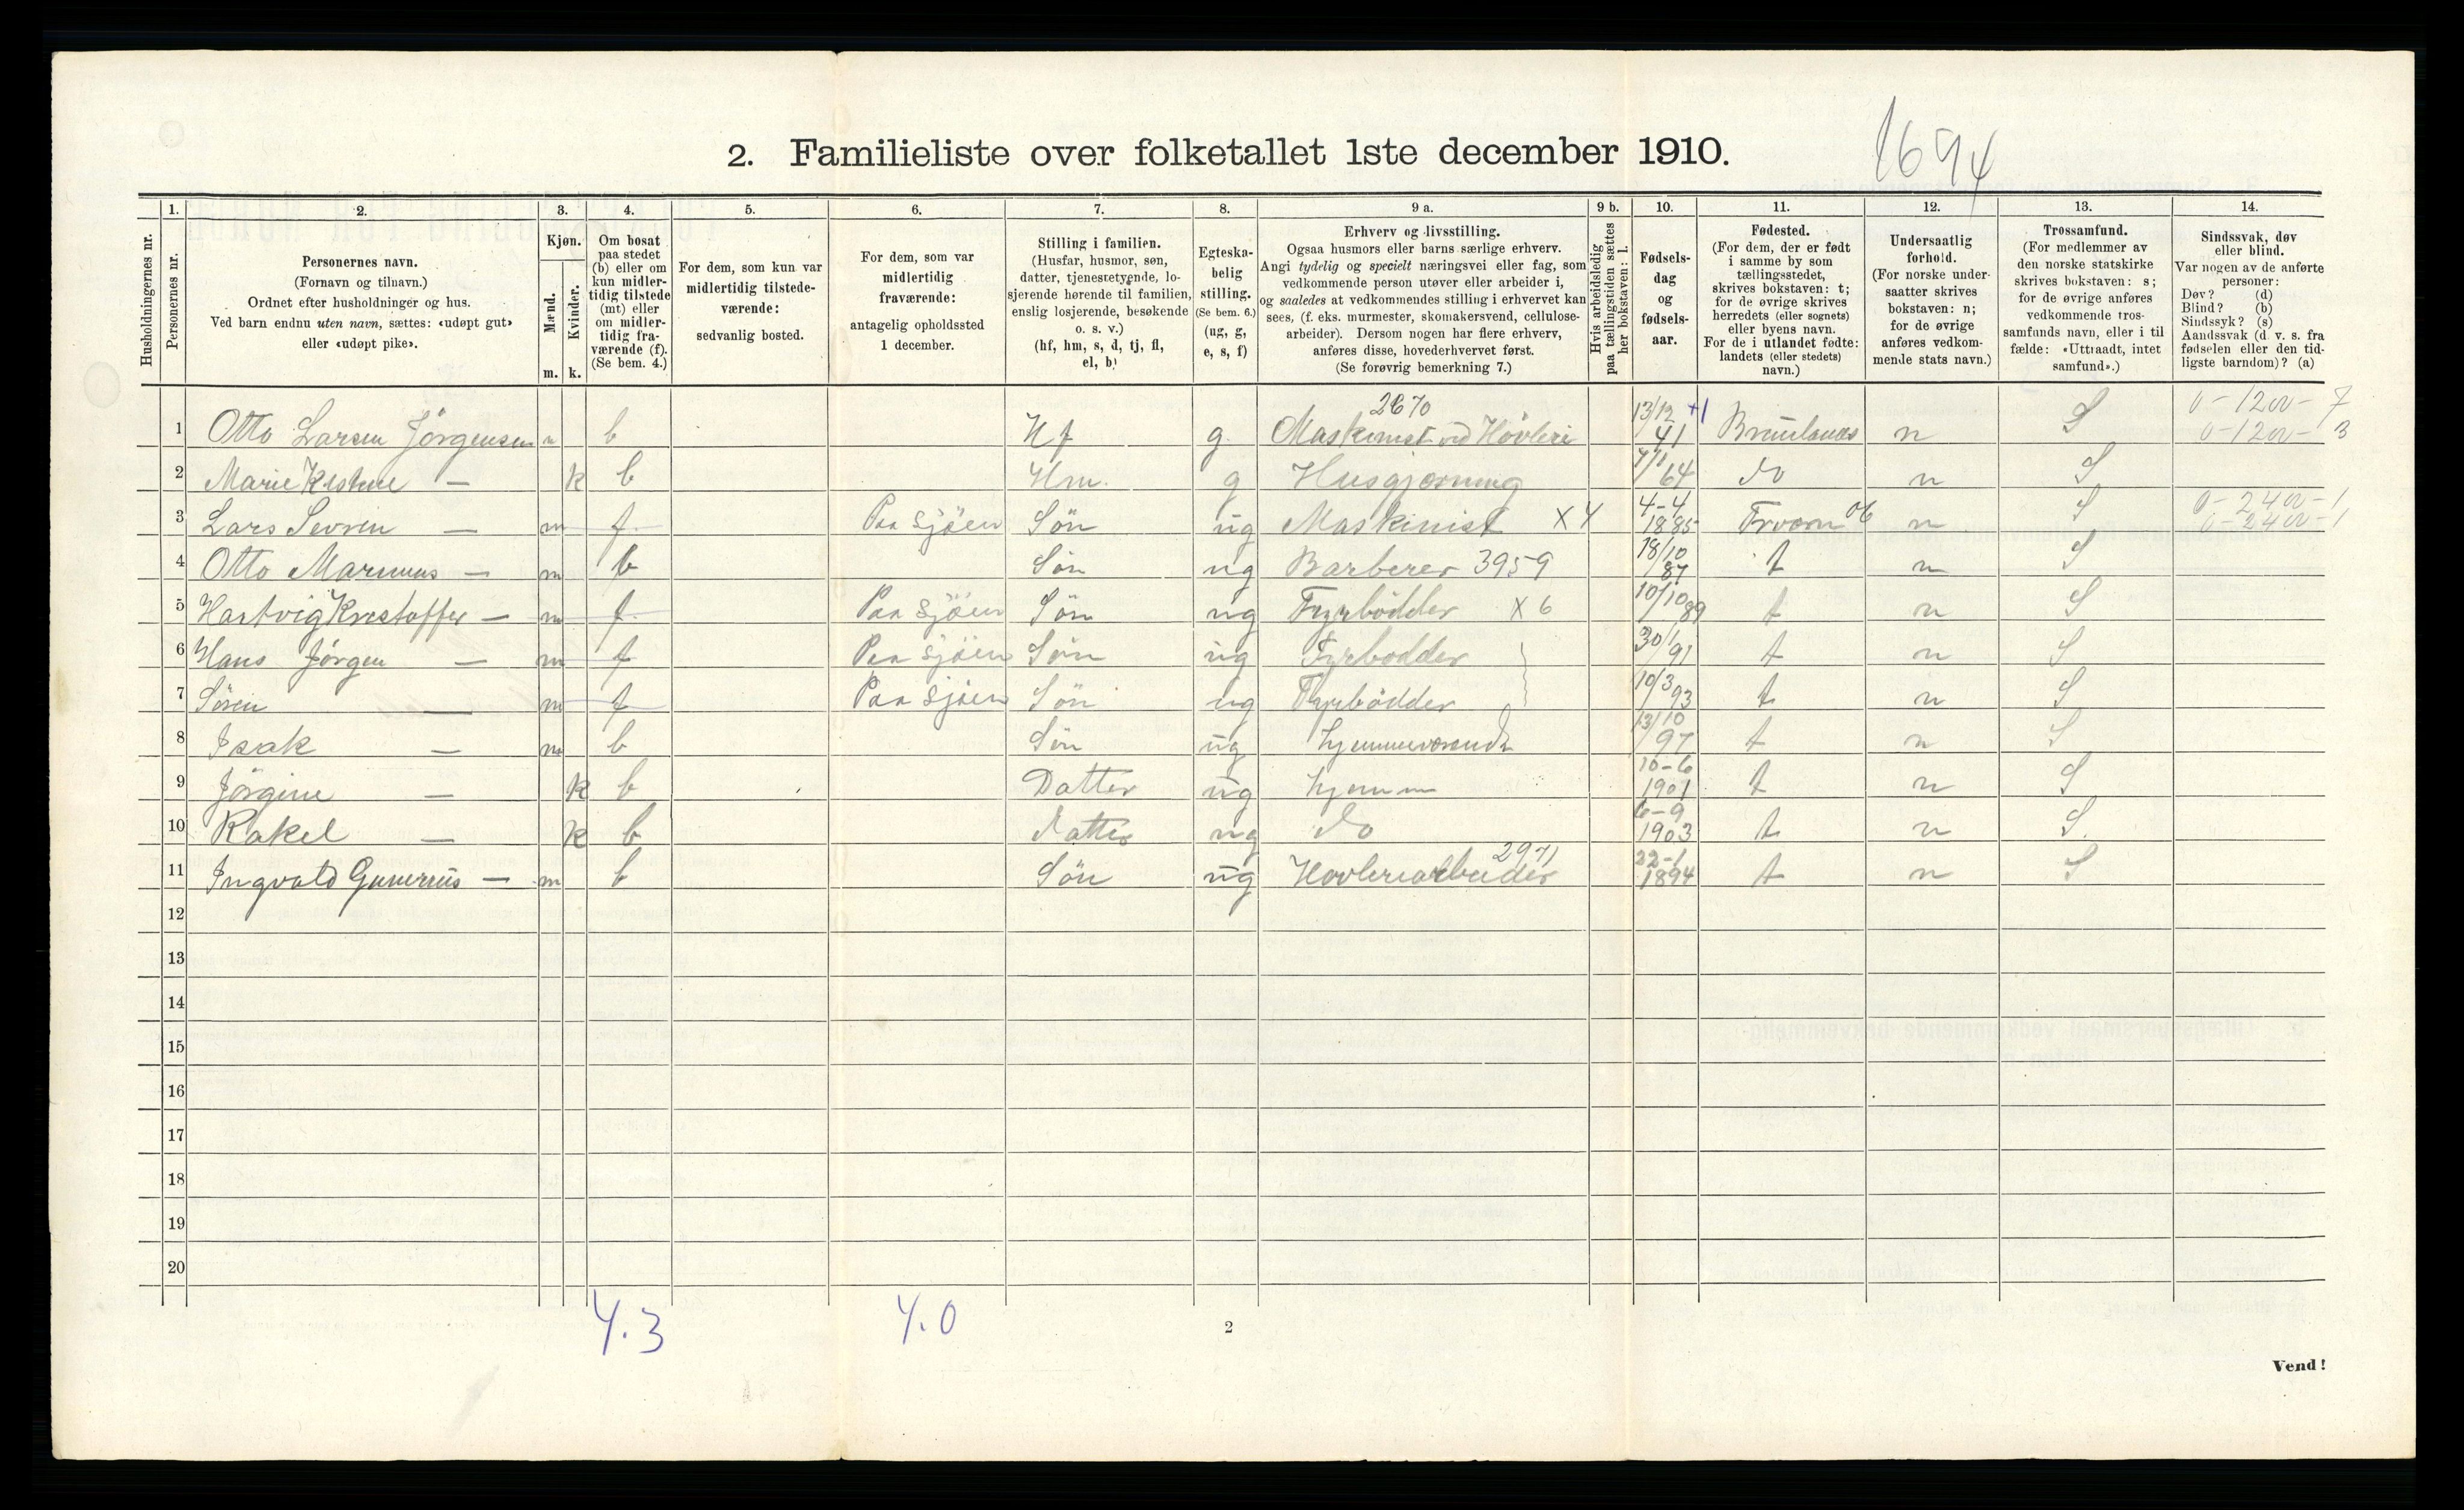 1694
2. Familieliste over folketallet 1ste december 1910.
1. 2. 3. 4. 5. 6. 7. 8. 9 a. 9 b. 10. 11. 12. 13. 14.
Husholdningernes nr.
Personernes nr.
Personernes navn.
(Fornavn og tilnavn.)
Ordnet efter husholdninger og hus.
Ved barn endnu uten navn, sættes: «udøpt gut»
eller «udøpt pike».
Kjøn.
Mænd.
Kvinder.
m. k.
Om bosat
paa stedet
(b) eller om
kun midler-
tidig tilstede
(mt) eller
om midler-
tidig fra-
værende (f).
(Se bem. 4.)
For dem, som kun var
midlertidig tilstede-
værende:
sedvanlig bosted.
For dem, som var
midlertidig
fraværende:
antagelig opholdssted
1 december.
Stilling i familien.
(Husfar, husmor, søn,
datter, tjenestetyende, lo-
sjerende hørende til familien,
enslig losjerende, besøkende
o. s. v.)
(hf, hm, s, d, tj, fl,
el, b)
Egteska-
belig
stilling.
(Se bem. 6.)
(ug, g,
e, s, f)
Erhverv og livsstilling.
Ogsaa husmors eller barns særlige erhverv.
Angi tydelig og specielt næringsvei eller fag, som
vedkommende person utøver eller arbeider i,
og saaledes at vedkommendes stilling i erhvervet kan
sees, (f. eks. murmester, skomakersvend, cellulose-
arbeider). Dersom nogen har flere erhverv,
anføres disse, hovederhvervet først.
(Se forøvrig bemerkning 7.)
Hvis arbeidsledig
paa tællingstiden sættes
her bokstaven: l.
Fødsels-
dag
og
fødsels-
aar.
Fødested.
(For dem, der er født
i samme by som
tællingsstedet,
skrives bokstaven: t;
for de øvrige skrives
herredets (eller sognets)
eller byens navn.
For de i utlandet fødte:
landets (eller stedets)
navn.)
Undersaatlig
forhold.
(For norske under-
saatter skrives
bokstaven: n;
for de øvrige
anføres vedkom-
mende stats navn.)
Trossamfund.
(For medlemmer av
den norske statskirke
skrives bokstaven: s;
for de øvrige anføres
vedkommende tros-
samfunds navn, eller i til
fælde: «Uttraadt, intet
samfund».)
Sindssvak, døv
eller blind.
Var nogen av de anførte
personer:
Døv? (d)
Blind? (b)
Sindssyk? (s)
Aandssvak (d. v. s. fra
fødselen eller den tid-
ligste barndom)? (a)
2670 13/12 +1 0-1200- 7
1 Otto Larsen Jörgensen m b Hf g. Maskinist ved Hövleri 41 Brunlanes n S 0-1200- 3
2 Marie Kistine — k b Hm. g Husgjærning 7/1 64 do n S
3 Lars Sevrin — m f Paa Sjöen Sön ug Maskinist X4 4-4 1885 06 n S 0-2400-1
0-2400-1
4 Otto Marinus — m b Sön ug Barberer 3959 18/10 87 t n S
5 Hartvig Kristoffer — m f Paa Sjöen Sön ug Fyrbödder X6 10/10 89 t n S
6 Hans Jörgen — m f Paa Sjöen Sön ug Fyrbödder 30/1 91 t n S
7 Sören — m f Paa Sjöen Sön ug Fyrbödder 10/3 93 t n S
8 Isak — m b Sön ug hjemmeværende 13/10 97 t n S
9 Jörgine — k b Datter ug hjemme 10-6 1901 t n S
10 Rakel — k b Datter ug do 6-9 1903 t n S.
11 Ingvald Gunerius — m b Sön ug Hövleriarbeider 2971 22-1 1894 t n S
12
13
14
15
16
17
18
19
20
4.3 4.0
2
Vend!